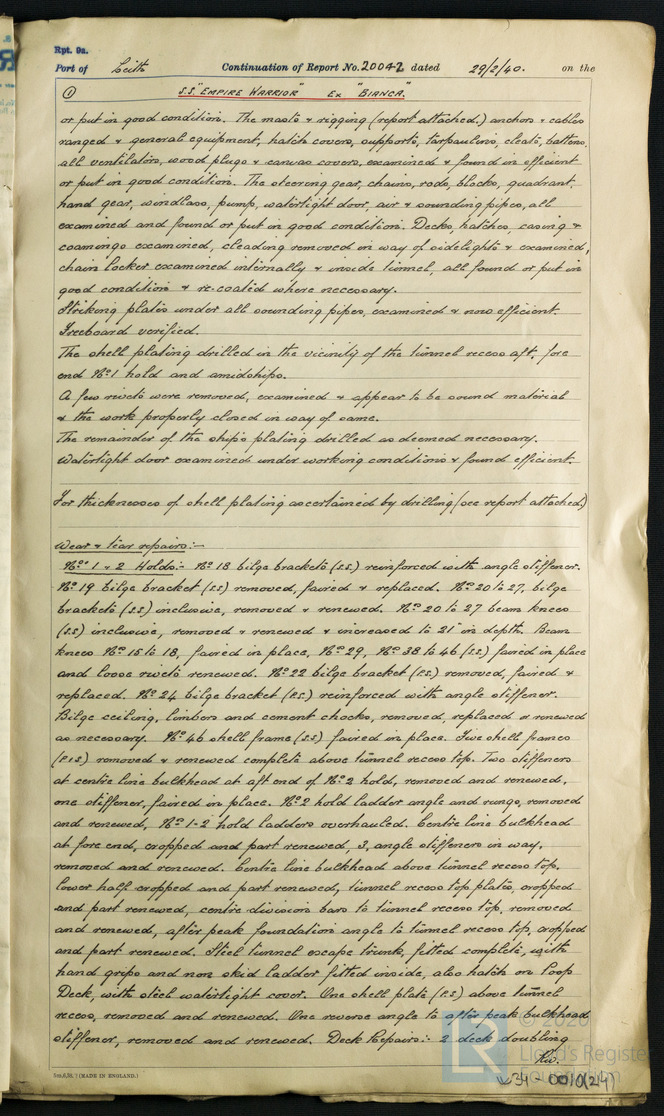 Rpt. 9a.
Port of Leith Continuation of Report No. 20042 dated 29/2/40. on the
① S.S. "EMPIRE WARRIOR" Ex "BIANCA."
or put in good condition. The masts & rigging (report attached.) anchors & cables
ranged & general equipment, hatch covers, supports, tarpaulins, cleats, battens,
all ventilators, wood plugs & canvas covers, examined & found in efficient
or put in good condition. The steering gear, chains, rods, blocks, quadrant,
hand gear, windlass, pump, watertight door, air & sounding pipes, all
examined and found or put in good condition. Decks, hatches, casing &
coamings examined, cleading removed in way of sidelights & examined,
chain locker examined internally & inside tunnel, all found or put in
good condition & re-coated where necessary.
Striking plates under all sounding pipes, examined & now efficient.
Freeboard verified.
The shell plating drilled in the vicinity of the tunnel recess aft, fore
end No 1 hold and amidships.
A few rivets were removed, examined & appear to be sound material
& the work properly closed in way of same.
The remainder of the ship's plating drilled as deemed necessary.
Watertight door examined under working conditions & found efficient.
For thicknesses of shell plating ascertained by drilling (see report attached)
Wear & tear repairs:-
Nos 1 & 2 Holds:- No 18 bilge brackets (s.s.) reinforced with angle stiffener.
No 19 bilge bracket (s.s.) removed, faired & replaced. Nos 20 to 27, bilge
brackets (s.s.) inclusive, removed & renewed. Nos 20 to 27 beam knees
(s.s.) inclusive, removed & renewed & increased to 21" in depth. Beam
knees Nos 15 to 18, faired in place, No 29, Nos 38 to 46 (s.s.) faired in place
and loose rivets renewed. No 22 bilge bracket (P.S.) removed, faired &
replaced. No 24 bilge bracket (P.S.) reinforced with angle stiffener.
Bilge ceiling, limbers and cement chocks, removed, replaced or renewed
as necessary. No 46 shell frame (s.s) faired in place. Five shell frames
(P.&S) removed & renewed complete above tunnel recess top. Two stiffeners
at centre line bulkhead at aft end of No 2 hold, removed and renewed,
one stiffener, faired in place. No 2 hold ladder angle and rungs, removed
and renewed, Nos 1-2 hold ladders overhauled. Centre line bulkhead
at fore end, cropped and part renewed, 3, angle stiffeners in way,
removed and renewed. Centre line bulkhead above tunnel recess top,
lower half cropped and part renewed, tunnel recess top plates, cropped
and part renewed, centre division bars to tunnel recess top, removed
and renewed, after peak foundation angle to tunnel recess top, cropped
and part renewed. Steel tunnel escape trunk, fitted complete, with
hand grips and non skid ladder fitted inside, also hatch on Poop
Deck, with steel watertight cover. One shell plate (P.S.) above tunnel
recess, removed and renewed. One reverse angle to after peak bulkhead
stiffener, removed and renewed. Deck Repairs:- 2 deck doubling
(MADE IN ENGLAND.)
© 2020
Lloyd's Register
Foundation
W34-0010(2/4)